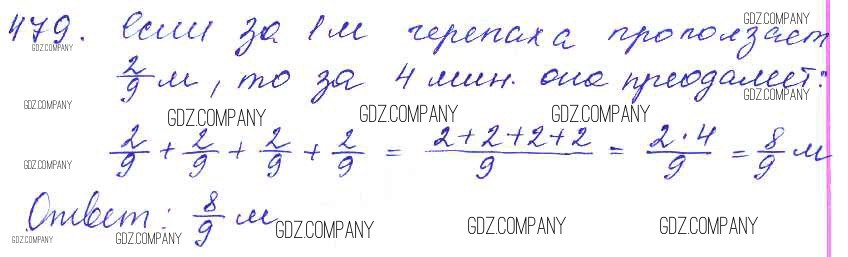 479. Если за 1 м черепаха проползает
2/9 м, то за 4 мин. она преодалеет:
2/9 + 2/9 + 2/9 + 2/9 = 2+2+2+2/9 = 2·4/9 = 8/9 м
Ответ: 8/9 м
GDZ.COMPANY
GDZ.COMPANY
GDZ.COMPANY
GDZ.COMPANY
GDZ.COMPANY
GDZ.COMPANY
GDZ.COMPANY
GDZ.COMPANY
GDZ.COMPANY
GDZ.COMPANY
GDZ.COMPANY
GDZ.COMPANY
GDZ.COMPANY